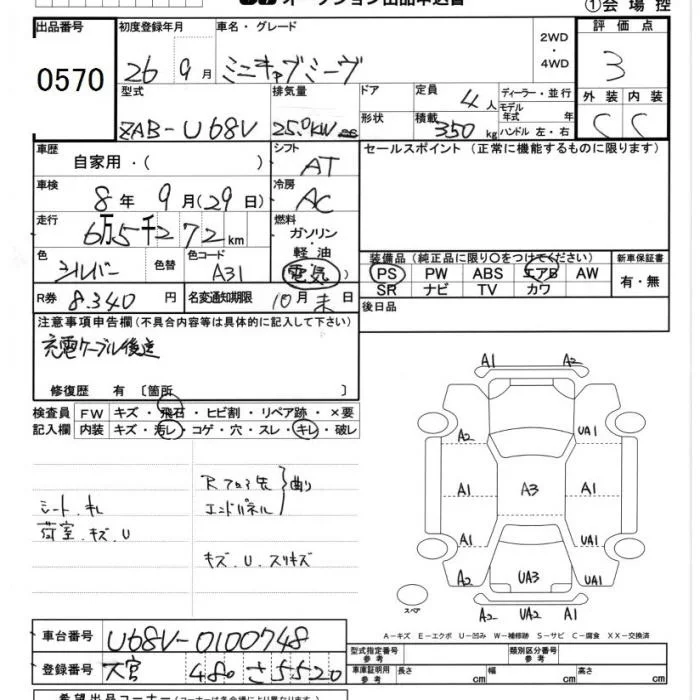 オークション出品申込書
①会場控
出品番号 初度登録年月 車名・グレード 評価点
0570 26 9月 ミニキャブミーヴ 2WD・4WD 3
型式 排気量 ドア 定員 4人 ディーラー・並行 外装 内装
ZAB-U68V 25.0KW cc 形状 積載 350kg モデル年式 年 C C
ハンドル 左・右
車歴 シフト セールスポイント (正常に機能するものに限ります)
自家用・( ) AT
車検 冷房
8年 9月(29日) AC
走行 燃料
6万5千272km ガソリン
軽油
色 色替 色コード 電気 装備品(純正品に限り○をつけてください) 新車保証書
シルバー A31 PS PW ABS エアB AW 有・無
R券 8.340円 名変通知期限 10月末日 SR ナビ TV カワ
注意事項申告欄(不具合内容等は具体的に記入して下さい) 後日品
充電ケーブル後送
修復歴 有 〔箇所 〕
検査員 FW キズ・飛石・ヒビ割・リペア跡・×要
記入欄 内装 キズ・汚レ・コゲ・穴・スレ・キレ・破レ
シート、キレ
荷室、キズ、U
Rフロア先
エンドパネル 曲り
キズ、U、スリキズ
A1 A2
A2 UA1
A1 A3 A1
A1 UA1
A2 UA3 UA1
UA2 A1
スペア
A-キズ E-エクボ U-凹み W-補修跡 S-サビ C-腐食 XX-交換済
車台番号 U68V-0100748
型式指定番号 参考 類別区分番号 参考
登録番号 大宮 480 さ 5520
車庫証明用 参考 長さ cm 幅 cm 高さ cm
希望出品コーナー